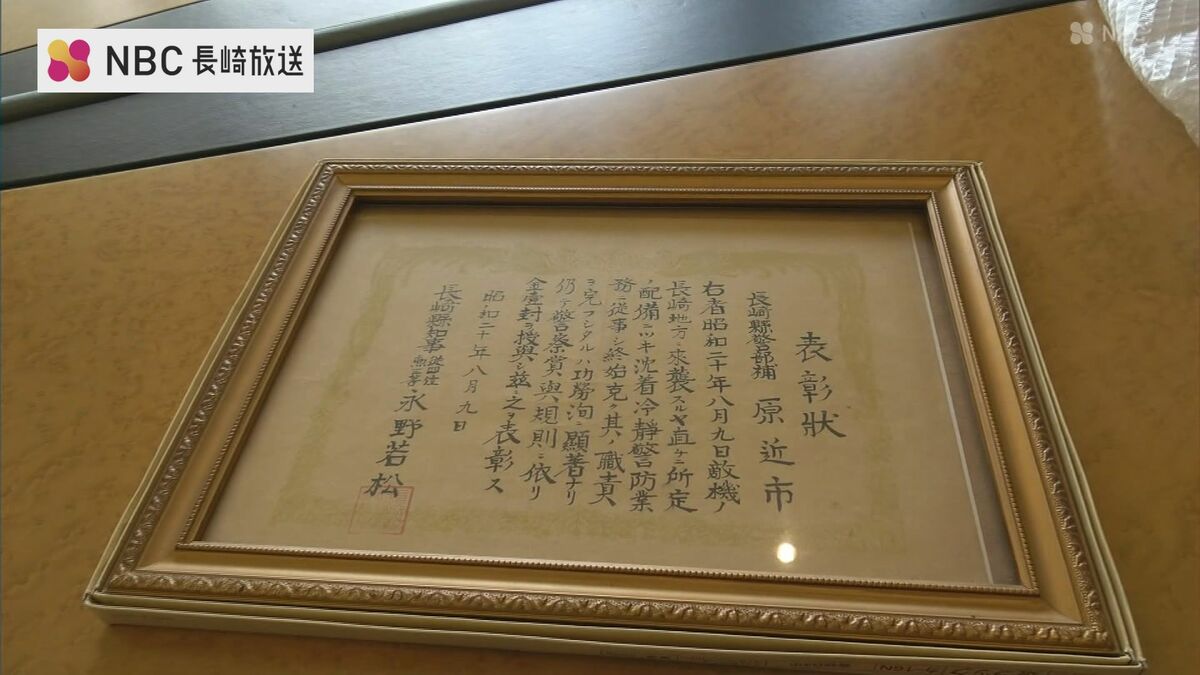 NBC 長崎放送
表彰状
長崎縣警部補 原近市
右者昭和二十年八月九日敵機ノ
長崎地方ニ來襲スルヤ直ケニ所定
ノ配備ニツキ沈着冷靜警防業
務ニ從事シ終始克ク其ノ職責
ヲ完フシタルハ功勞洵ニ顯著ナリ
仍テ警察賞與規則ニ依リ
金壹封ヲ授與シ茲ニ之ヲ表彰ス
昭和二十年八月九日
長崎縣知事 永野若松